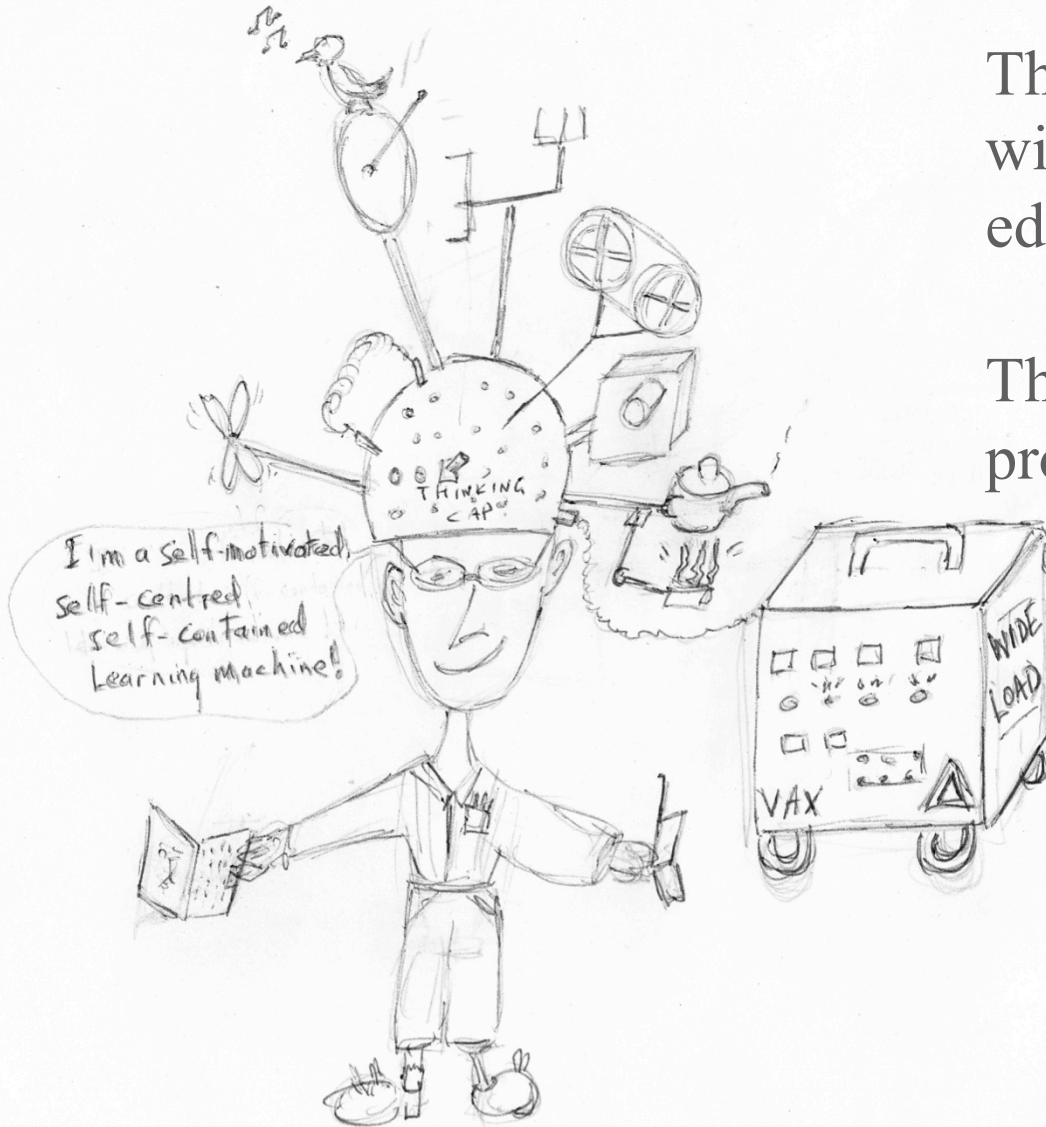 Th
wi
ed
Th
pro
THINKING
CAP
I'm a self-motivated,
self-centred,
self-contained
Learning machine!
WIDE
LOAD
VAX